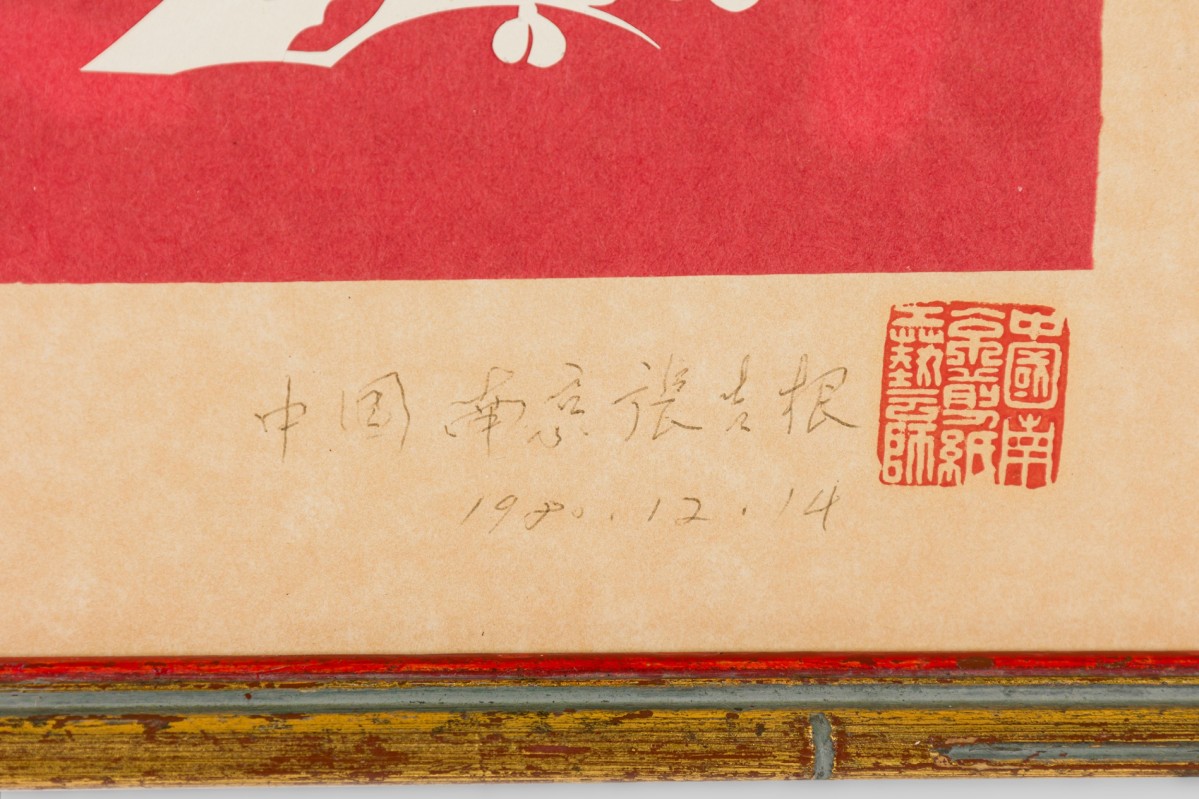 中国 南京 張吉根
1980.12.14
中國南
京剪紙
工藝師